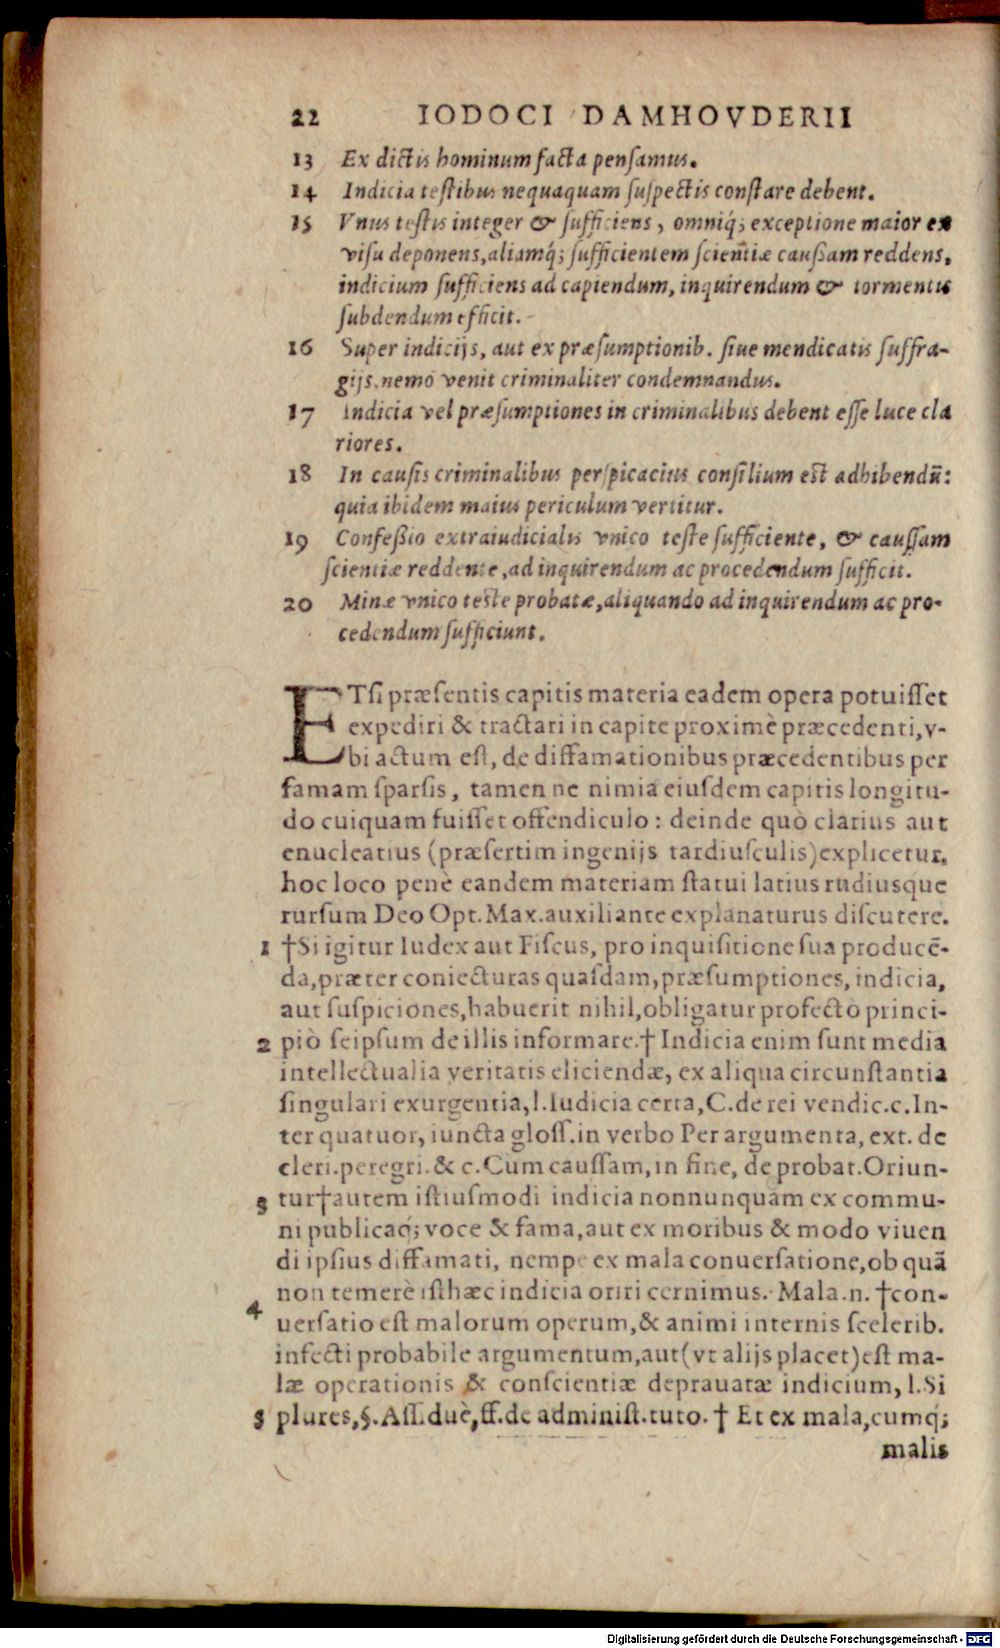 22 IODOCI DAMHOVDERII
13 Ex dictis hominum facta pensamus.
14 Indicia testibus nequaquam suspectis constare debent.
15 Vnus testis integer & sufficiens, omniq́; exceptione maior ex
visu deponens, aliamq́; sufficientem scientiæ caußam reddens,
indicium sufficiens ad capiendum, inquirendum & tormentis
subdendum efficit.
16 Super indicijs, aut ex præsumptionib. siue mendicatis suffra-
gijs, nemo venit criminaliter condemnandus.
17 Indicia vel præsumptiones in criminalibus debent esse luce cla
riores.
18 In causis criminalibus perspicacius consilium est adhibendū:
quia ibidem maius periculum vertitur.
19 Confeßio extraiudicialis vnico teste sufficiente, & caussam
scientiæ reddente, ad inquirendum ac procedendum sufficit.
20 Minæ vnico teste probatæ, aliquando ad inquirendum ac pro-
cedendum sufficiunt.
ETsi præsentis capitis materia eadem opera potuisset
expediri & tractari in capite proximè præcedenti, v-
bi actum est, de diffamationibus præcedentibus per
famam sparsis, tamen ne nimia eiusdem capitis longitu-
do cuiquam fuisset offendiculo: deinde quò clarius aut
enucleatius (præsertim ingenijs tardiusculis) explicetur,
hoc loco penè eandem materiam statui latius rudiusque
rursum Deo Opt. Max. auxiliante explanaturus discutere.
1 †Si igitur Iudex aut Fiscus, pro inquisitione sua producē-
da, præter coniecturas quasdam, præsumptiones, indicia,
aut suspiciones, habuerit nihil, obligatur profectò princi-
2 piò seipsum de illis informare.† Indicia enim sunt media
intellectualia veritatis eliciendæ, ex aliqua circunstantia
singulari exurgentia, l. Iudicia certa, C. de rei vendic. c. In-
ter quatuor, iuncta gloss. in verbo Per argumenta, ext. de
cleri. peregri. & c. Cum caussam, in fine, de probat. Oriun-
3 tur†autem istiusmodi indicia nonnunquam ex commu-
ni publicaq́; voce & fama, aut ex moribus & modo viuen
di ipsius diffamati, nempe ex mala conuersatione, ob quā
non temerè isthæc indicia oriri cernimus. Mala .n. †con-
4 uersatio est malorum operum, & animi internis scelerib.
infecti probabile argumentum, aut (vt alijs placet) est ma-
læ operationis & conscientiæ deprauatæ indicium, l. Si
5 plures, §. Ass. duè, ff. de administ. tuto. † Et ex mala, cumq́;
malis
Digitalisierung gefördert durch die Deutsche Forschungsgemeinschaft - DFG